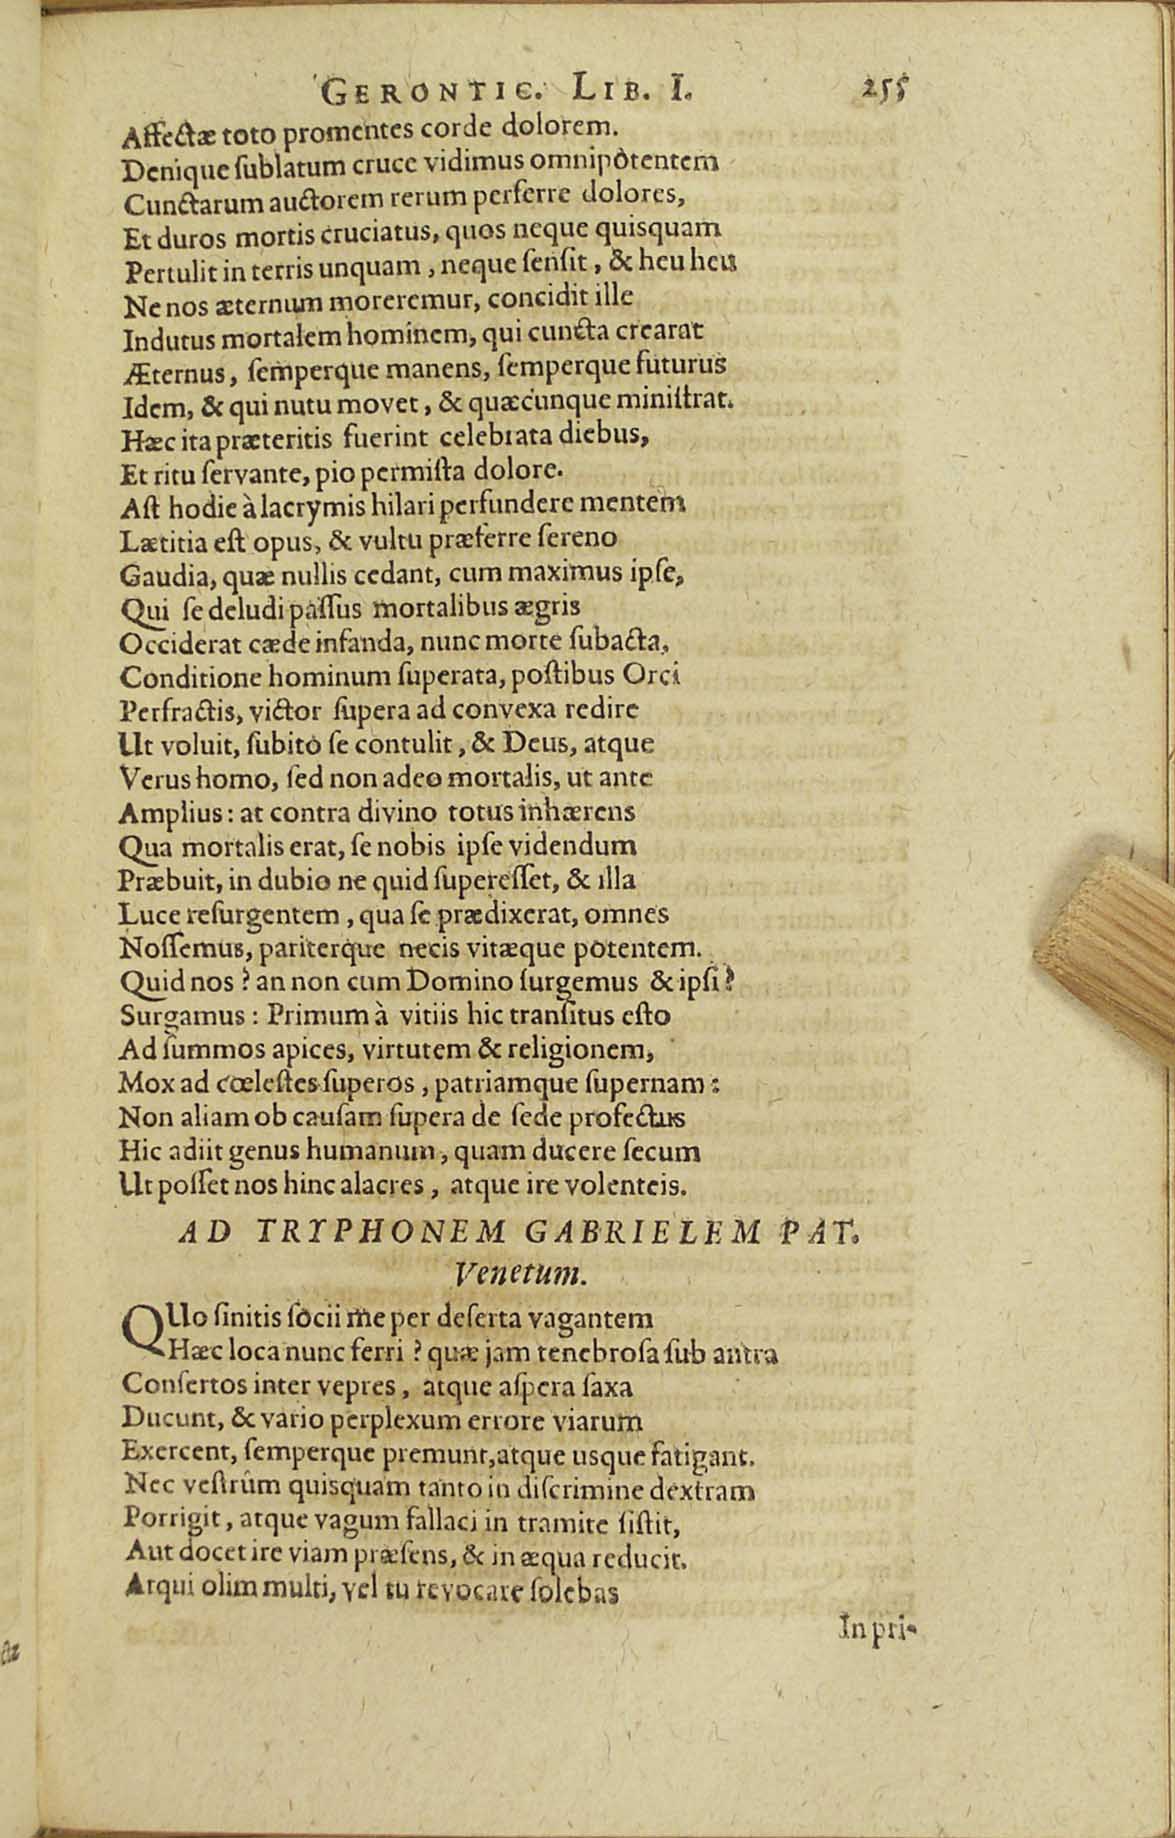 GERONTIC. LIB. I. 255
Affectæ toto promentes corde dolorem.
Denique ſublatum cruce vidimus omnipòtentem
Cunctarum auctorem rerum perferre dolores,
Et duros mortis cruciatus, quos neque quisquam
Pertulit in terris unquam, neque ſenſit, & heu heu
Ne nos æternum moreremur, concidit ille
Indutus mortalem hominem, qui cuncta crearat
Æternus, ſemperque manens, ſemperque futurus
Idem, & qui nutu movet, & quæcunque miniſtrat.
Hæc ita præteritis fuerint celebrata diebus,
Et ritu ſervante, pio permiſta dolore.
Aſt hodie à lacrymis hilari perfundere mentem
Lætitia eſt opus, & vultu præferre ſereno
Gaudia, quæ nullis cedant, cum maximus ipſe,
Qui ſe deludi paſſus mortalibus ægris
Occiderat cæde infanda, nunc morte ſubacta,
Conditione hominum ſuperata, poſtibus Orci
Perfractis, victor ſupera ad convexa redire
Ut voluit, ſubitò ſe contulit, & Deus, atque
Verus homo, ſed non adeo mortalis, ut ante
Amplius: at contra divino totus inhærens
Qua mortalis erat, ſe nobis ipſe videndum
Præbuit, in dubio ne quid ſupereſſet, & illa
Luce reſurgentem, qua ſe prædixerat, omnes
Noſſemus, pariterque necis vitæque potentem.
Quid nos? an non cum Domino ſurgemus & ipſi?
Surgamus: Primum à vitiis hic tranſitus eſto
Ad ſummos apices, virtutem & religionem,
Mox ad cœleſtes ſuperos, patriamque ſupernam:
Non aliam ob cauſam ſupera de ſede profectus
Hic adiit genus humanum, quam ducere ſecum
Ut poſſet nos hinc alacres, atque ire volenteis.
AD TRYPHONEM GABRIELEM PAT.
Venetum.
QUo ſinitis ſocii me per deſerta vagantem
Hæc loca nunc ferri? quæ jam tenebroſa ſub antra
Conſertos inter vepres, atque aſpera ſaxa
Ducunt, & vario perplexum errore viarum
Exercent, ſemperque premunt, atque usque fatigant.
Nec veſtrûm quisquam tanto in diſcrimine dextram
Porrigit, atque vagum fallaci in tramite ſiſtit,
Aut docet ire viam præſens, & in æqua reducit.
Atqui olim multi, vel tu revocare ſolebas
In pri-